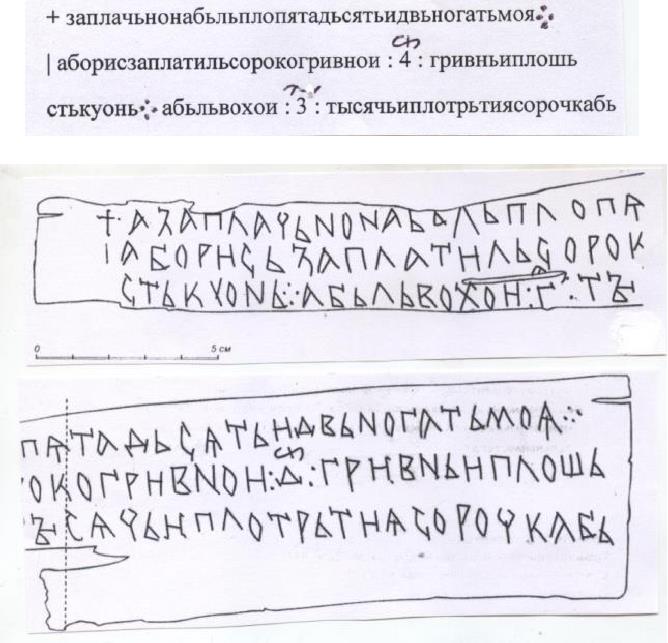 + заплачьнонабьльплопятадьсятьидвьногатьмоя⁘
| аборисзаплатильсорокогривнои : 4 : гривньиплошь
стькуонь⁘ абьльвохои : 3 : тысячьиплотрьтиясорочкабь
+·АЗАПЛАЧЬNОNАБЬЛЬПЛОПѦ
ІАБОРИСЬЗАПЛАТИЛЬСОРОК
СТЬКУОNЬ⁘АБЬЛЬВОХОИ:Г:ТЪ
0 5 см
ПѦТАДЬСѦТЬИДВЬNОГАТЬМОѦ⁘
ОКОГРИВNОИ:Д:ГРИВNЬИПЛОШЬ
ЪСѦЧЬИПЛОТРЬТИѦСОРОЧКАБЬ